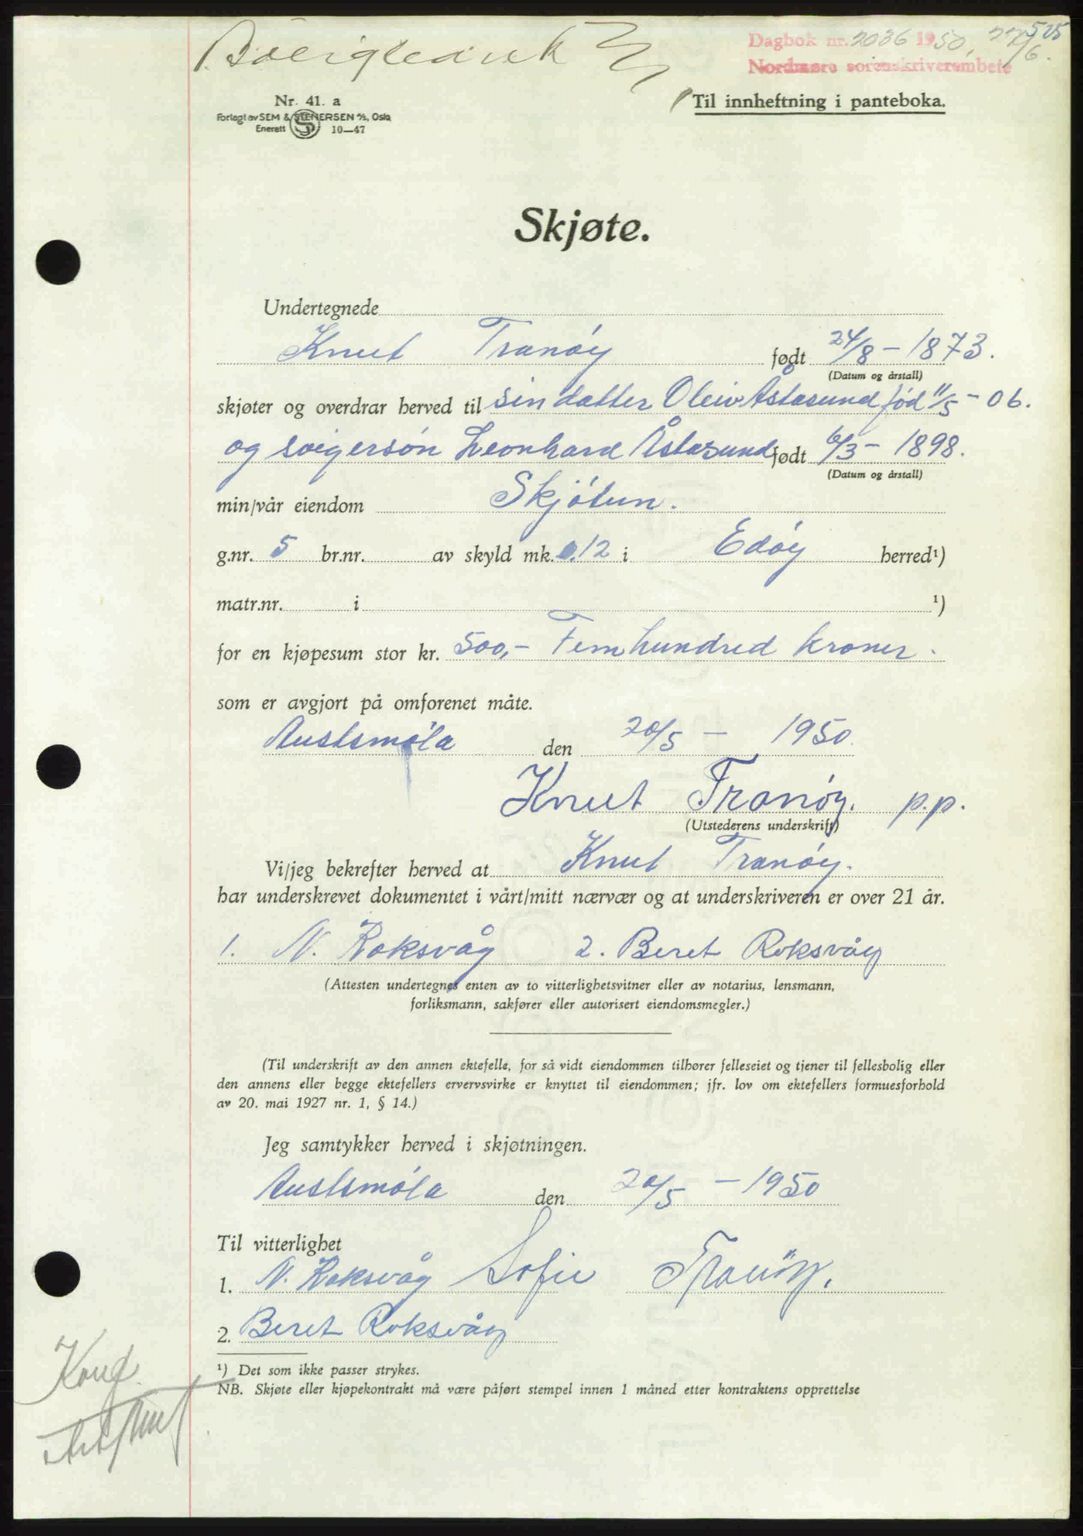 Dagbok nr. 2036 1950, 27/6. 525
Nordmøre sorenskriverembete
Nr. 41. a
Til innheftning i panteboka.
Forlagt av SEM & STENERSEN A/S, Oslo
Enerett 10—47
Skjøte.
Undertegnede
Knut Tranøy født 24/8 - 1873.
(Datum og årstall)
skjøter og overdrar herved til sin datter Oleiv Åstasund fød 11/5 - 06.
og svigersøn Leonhard Åstasund født 6/3 - 1898.
(Datum og årstall)
min/vår eiendom Skjøtun.
g.nr. 5 br.nr. av skyld mk. 0.12 i Edøy herred¹)
matr.nr. i ¹)
for en kjøpesum stor kr. 500,- Femhundred kroner.
som er avgjort på omforenet måte.
Austsmøla den 20/5 - 1950.
Knut Tranöy. p.p.
(Utstederens underskrift)
Vi/jeg bekrefter herved at Knut Tranøy.
har underskrevet dokumentet i vårt/mitt nærvær og at underskriveren er over 21 år.
1. N. Roksvåg 2. Beret Roksvåg
(Attesten undertegnes enten av to vitterlighetsvitner eller av notarius, lensmann,
forliksmann, sakfører eller autorisert eiendomsmegler.)
(Til underskrift av den annen ektefelle, for så vidt eiendommen tilhører felleseiet og tjener til fellesbolig eller
den annens eller begge ektefellers ervervsvirke er knyttet til eiendommen; jfr. lov om ektefellers formuesforhold
av 20. mai 1927 nr. 1, § 14.)
Jeg samtykker herved i skjøtningen.
Austsmøla den 20/5 - 1950
Til vitterlighet
1. N. Roksvåg Sofie Tranöy.
2. Beret Roksvåg
¹) Det som ikke passer strykes.
NB. Skjøte eller kjøpekontrakt må være påført stempel innen 1 måned etter kontraktens opprettelse
Konf.